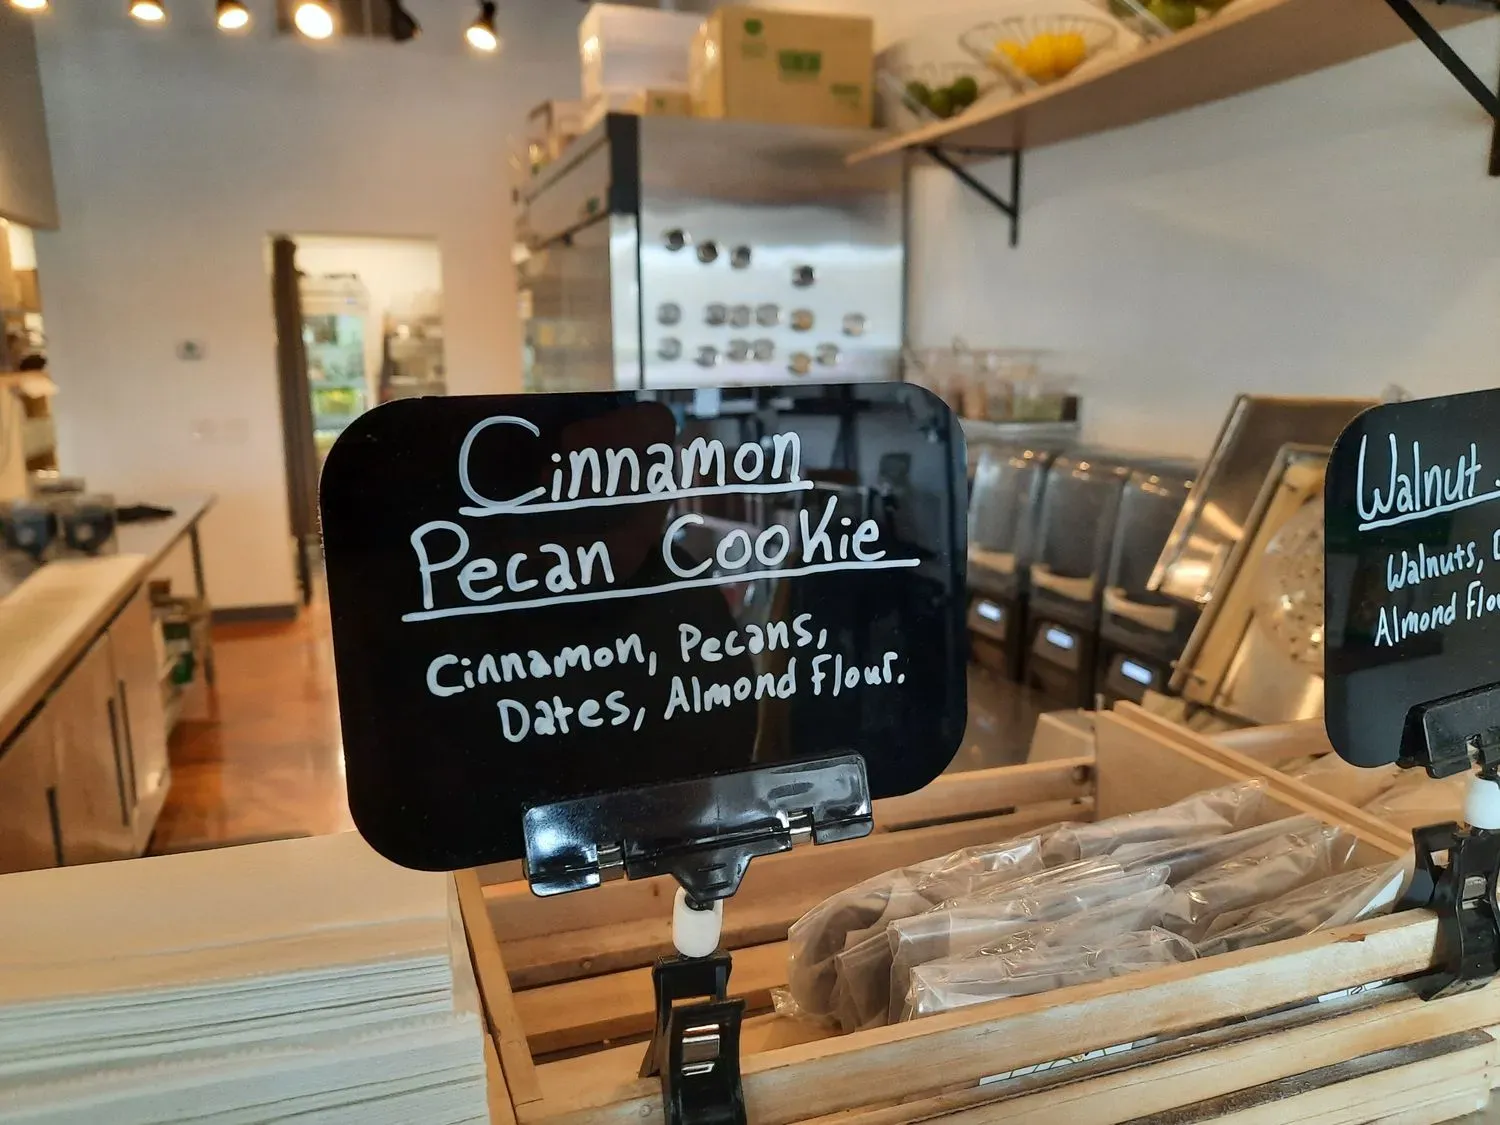 Cinnamon
Pecan Cookie
Cinnamon, Pecans,
Dates, Almond Flour.
Walnut
Walnuts,
Almond